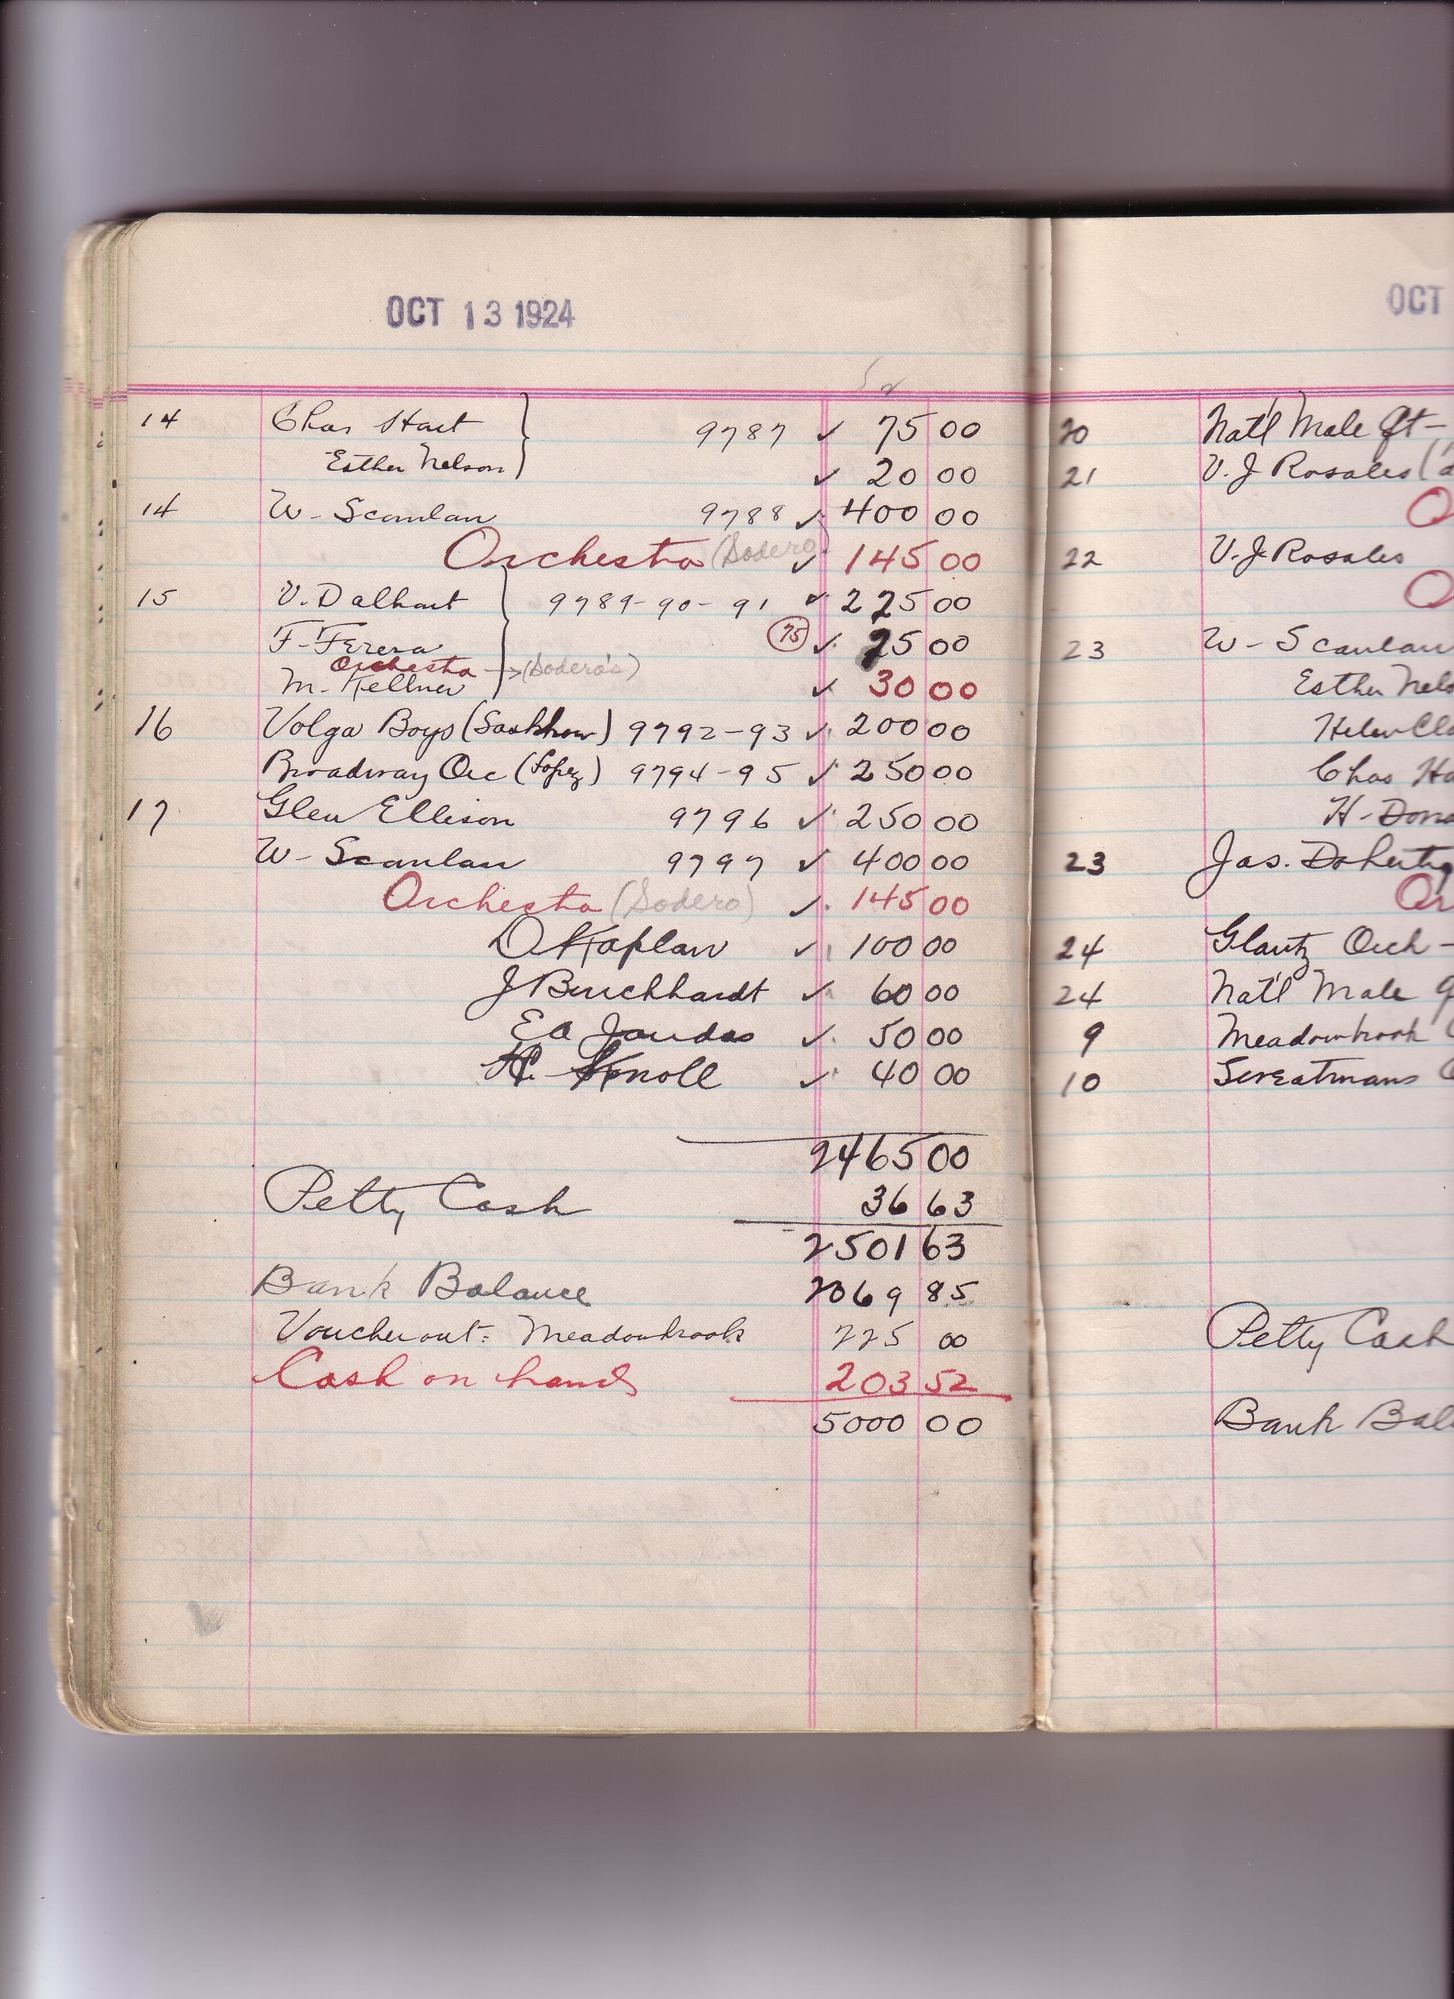 OCT 13 1924
14 Chas Hart 9787 ✓ 75 00
Esther Nelson ✓ 20 00
14 W- Scanlan 9788 ✓ 400 00
Orchestra (Sodero) ✓ 145 00
15 V. Dalhart 9789-90-91 ✓ 225 00
F- Ferera 75 ✓ 25 00
Orchestra → (Sodero's)
M- Kellner ✓ 30 00
16 Volga Boys 9792-93 ✓ 200 00
Broadway Orc (Lopez) 9794-95 ✓ 250 00
17 Glen Ellison 9796 ✓ 250 00
W- Scanlan 9797 ✓ 400 00
Orchestra (Sodero) ✓ 145 00
D Kaplan ✓ 100 00
J Burckhardt ✓ 60 00
EA Jandas ✓ 50 00
Knoll ✓ 40 00
2465 00
Petty Cash 36 63
2501 63
Bank Balance 2069 85
Voucher out: Meadowbrook 225 00
Cash on hand 203 52
5000 00
OCT
20 Nat'l Male Qt-
21 V. J Rosales (
O
22 V. J. Rosales
O
23 W- Scanlan
Esther Nels
Helen Cla
Chas Ha
H- Dona
23 Jas. Doherty
Or
24 Glantz Orch -
24 Nat'l Male Q
9 Meadowbrook
10
Petty Cash
Bank Bal